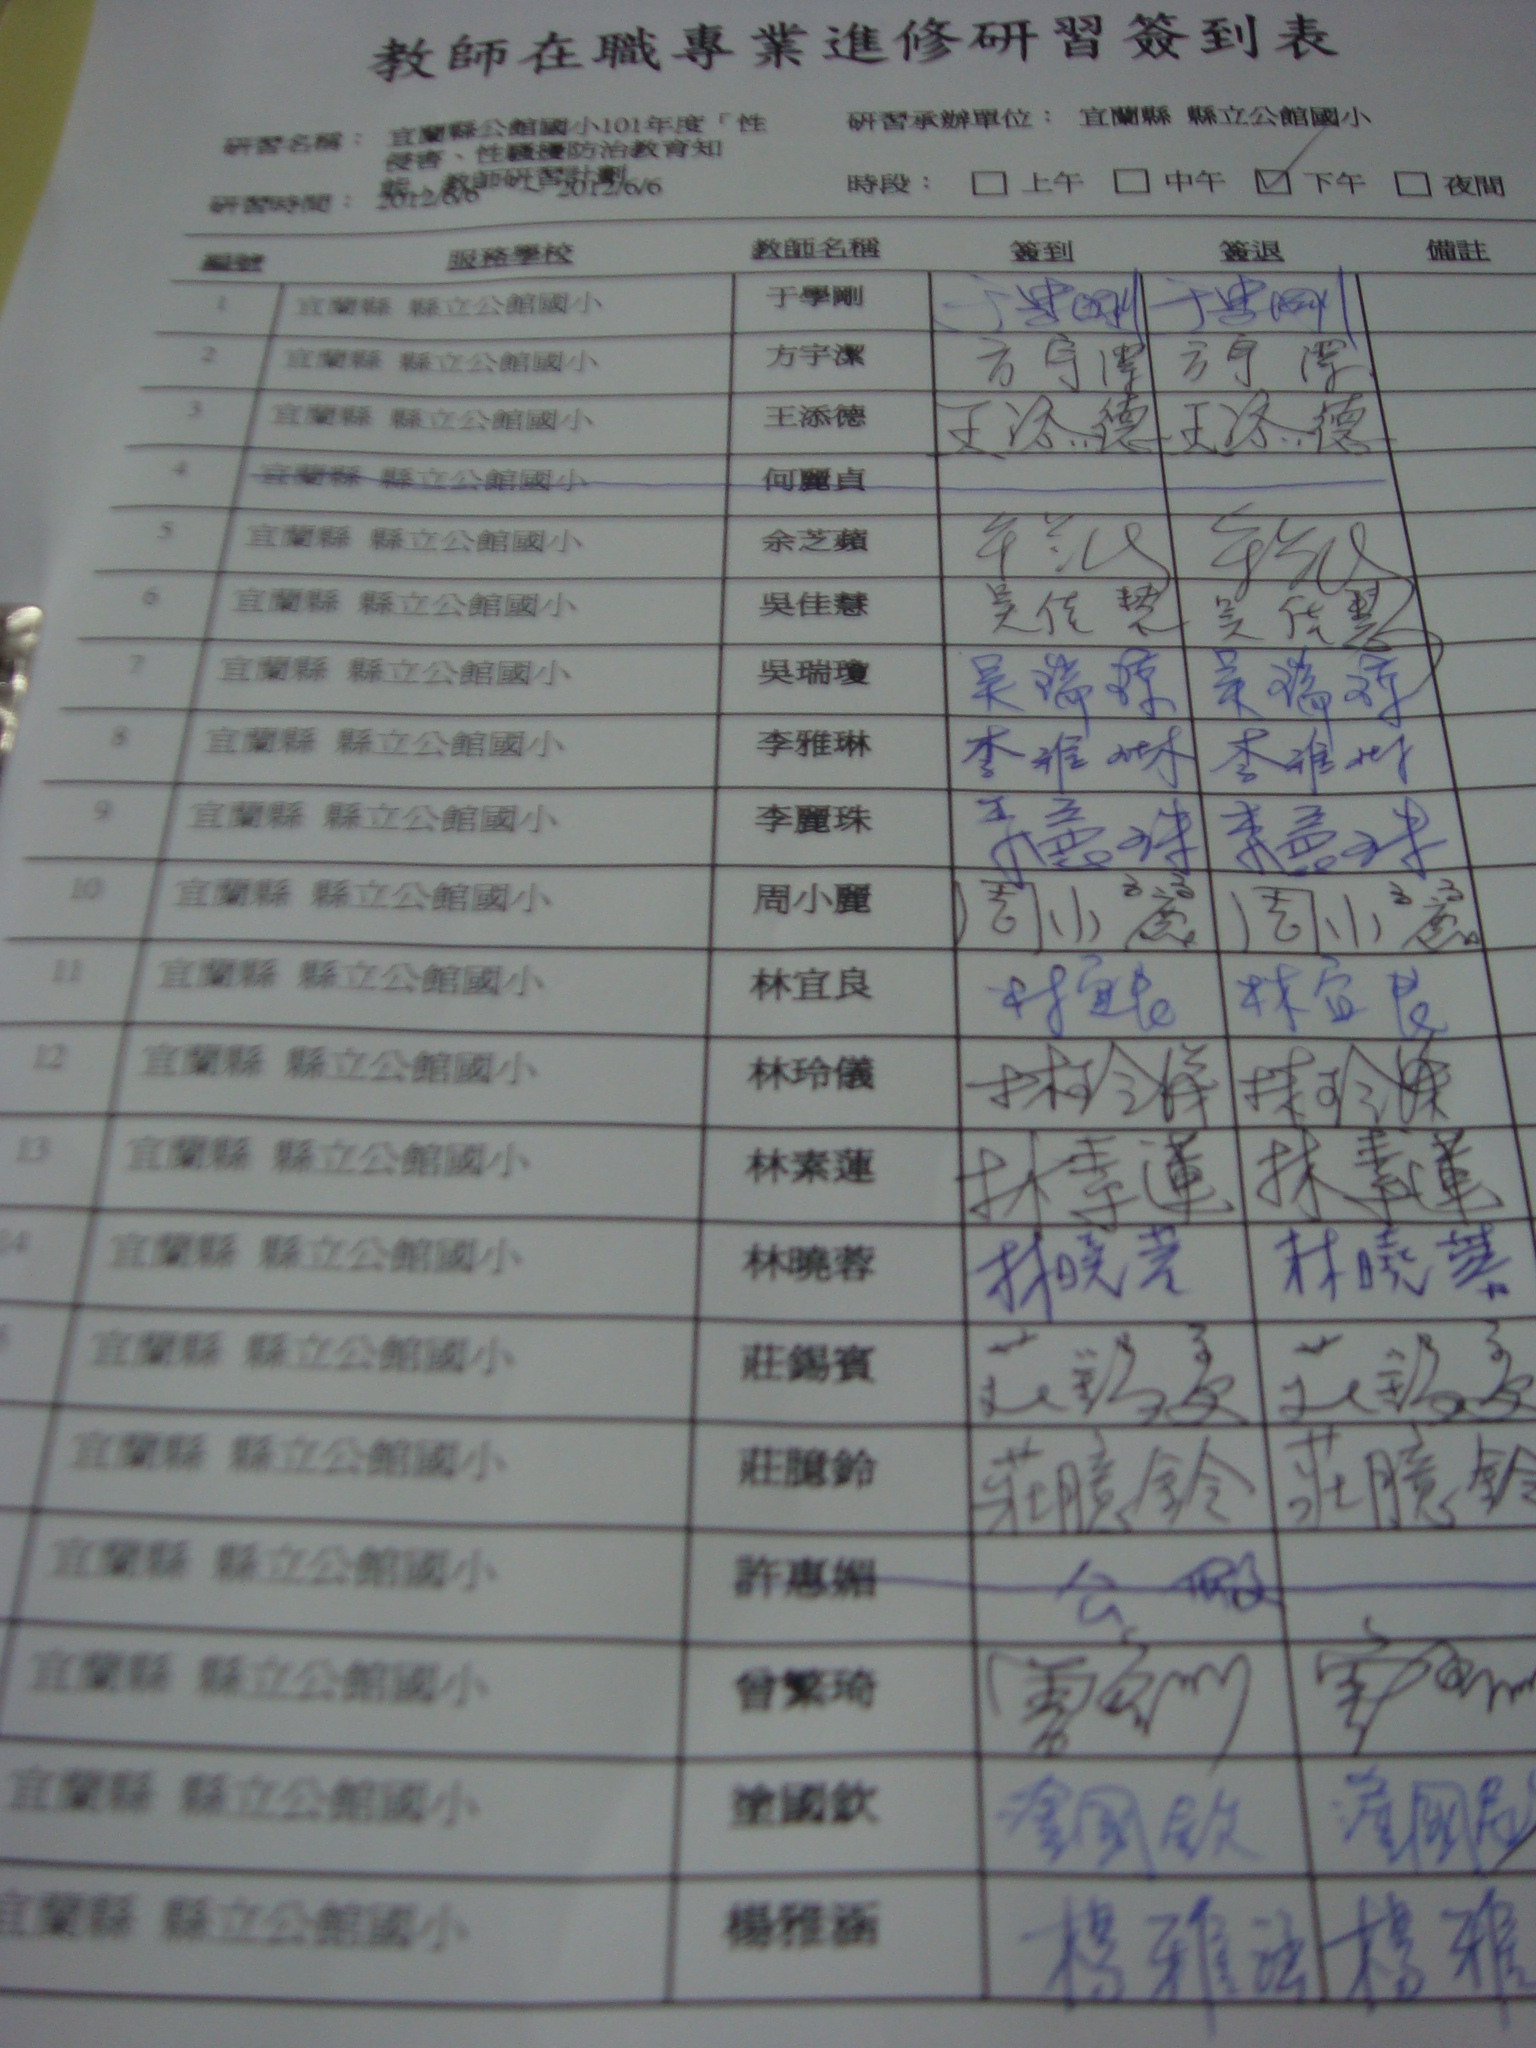 教師在職專業進修研習簽到表
研習名稱： 宜蘭縣公館國小101年度「性侵害、性騷擾防治教育知 教師研習計劃
研習承辦單位： 宜蘭縣 縣立公館國小
研習時間： 2012/6/6 ~ 2012/6/6
時段： □ 上午 □ 中午 ☑ 下午 □ 夜間
編號 服務學校 教師名稱 簽到 簽退 備註
1 宜蘭縣 縣立公館國小 于學剛 于學剛 于學剛
2 宜蘭縣 縣立公館國小 方宇潔 方宇潔 方宇潔
3 宜蘭縣 縣立公館國小 王添德 王添德 王添德
4 宜蘭縣 縣立公館國小 何麗貞
5 宜蘭縣 縣立公館國小 余芝蘋
6 宜蘭縣 縣立公館國小 吳佳慧 吳佳慧 吳佳慧
7 宜蘭縣 縣立公館國小 吳瑞瓊 吳瑞瓊 吳瑞瓊
8 宜蘭縣 縣立公館國小 李雅琳 李雅琳 李雅琳
9 宜蘭縣 縣立公館國小 李麗珠 李麗珠 李麗珠
10 宜蘭縣 縣立公館國小 周小麗 周小麗 周小麗
11 宜蘭縣 縣立公館國小 林宜良 林宜良 林宜良
12 宜蘭縣 縣立公館國小 林玲儀 林玲儀 林玲儀
13 宜蘭縣 縣立公館國小 林素蓮 林素蓮 林素蓮
14 宜蘭縣 縣立公館國小 林曉蓉 林曉蓉 林曉蓉
宜蘭縣 縣立公館國小 莊錫賓 莊錫賓 莊錫賓
宜蘭縣 縣立公館國小 莊臆鈴 莊臆鈴 莊臆鈴
宜蘭縣 縣立公館國小 許惠媚 公假
宜蘭縣 縣立公館國小 曾繁琦
宜蘭縣 縣立公館國小 塗國欽 塗國欽 塗國欽
宜蘭縣 縣立公館國小 楊雅涵 楊雅涵 楊雅